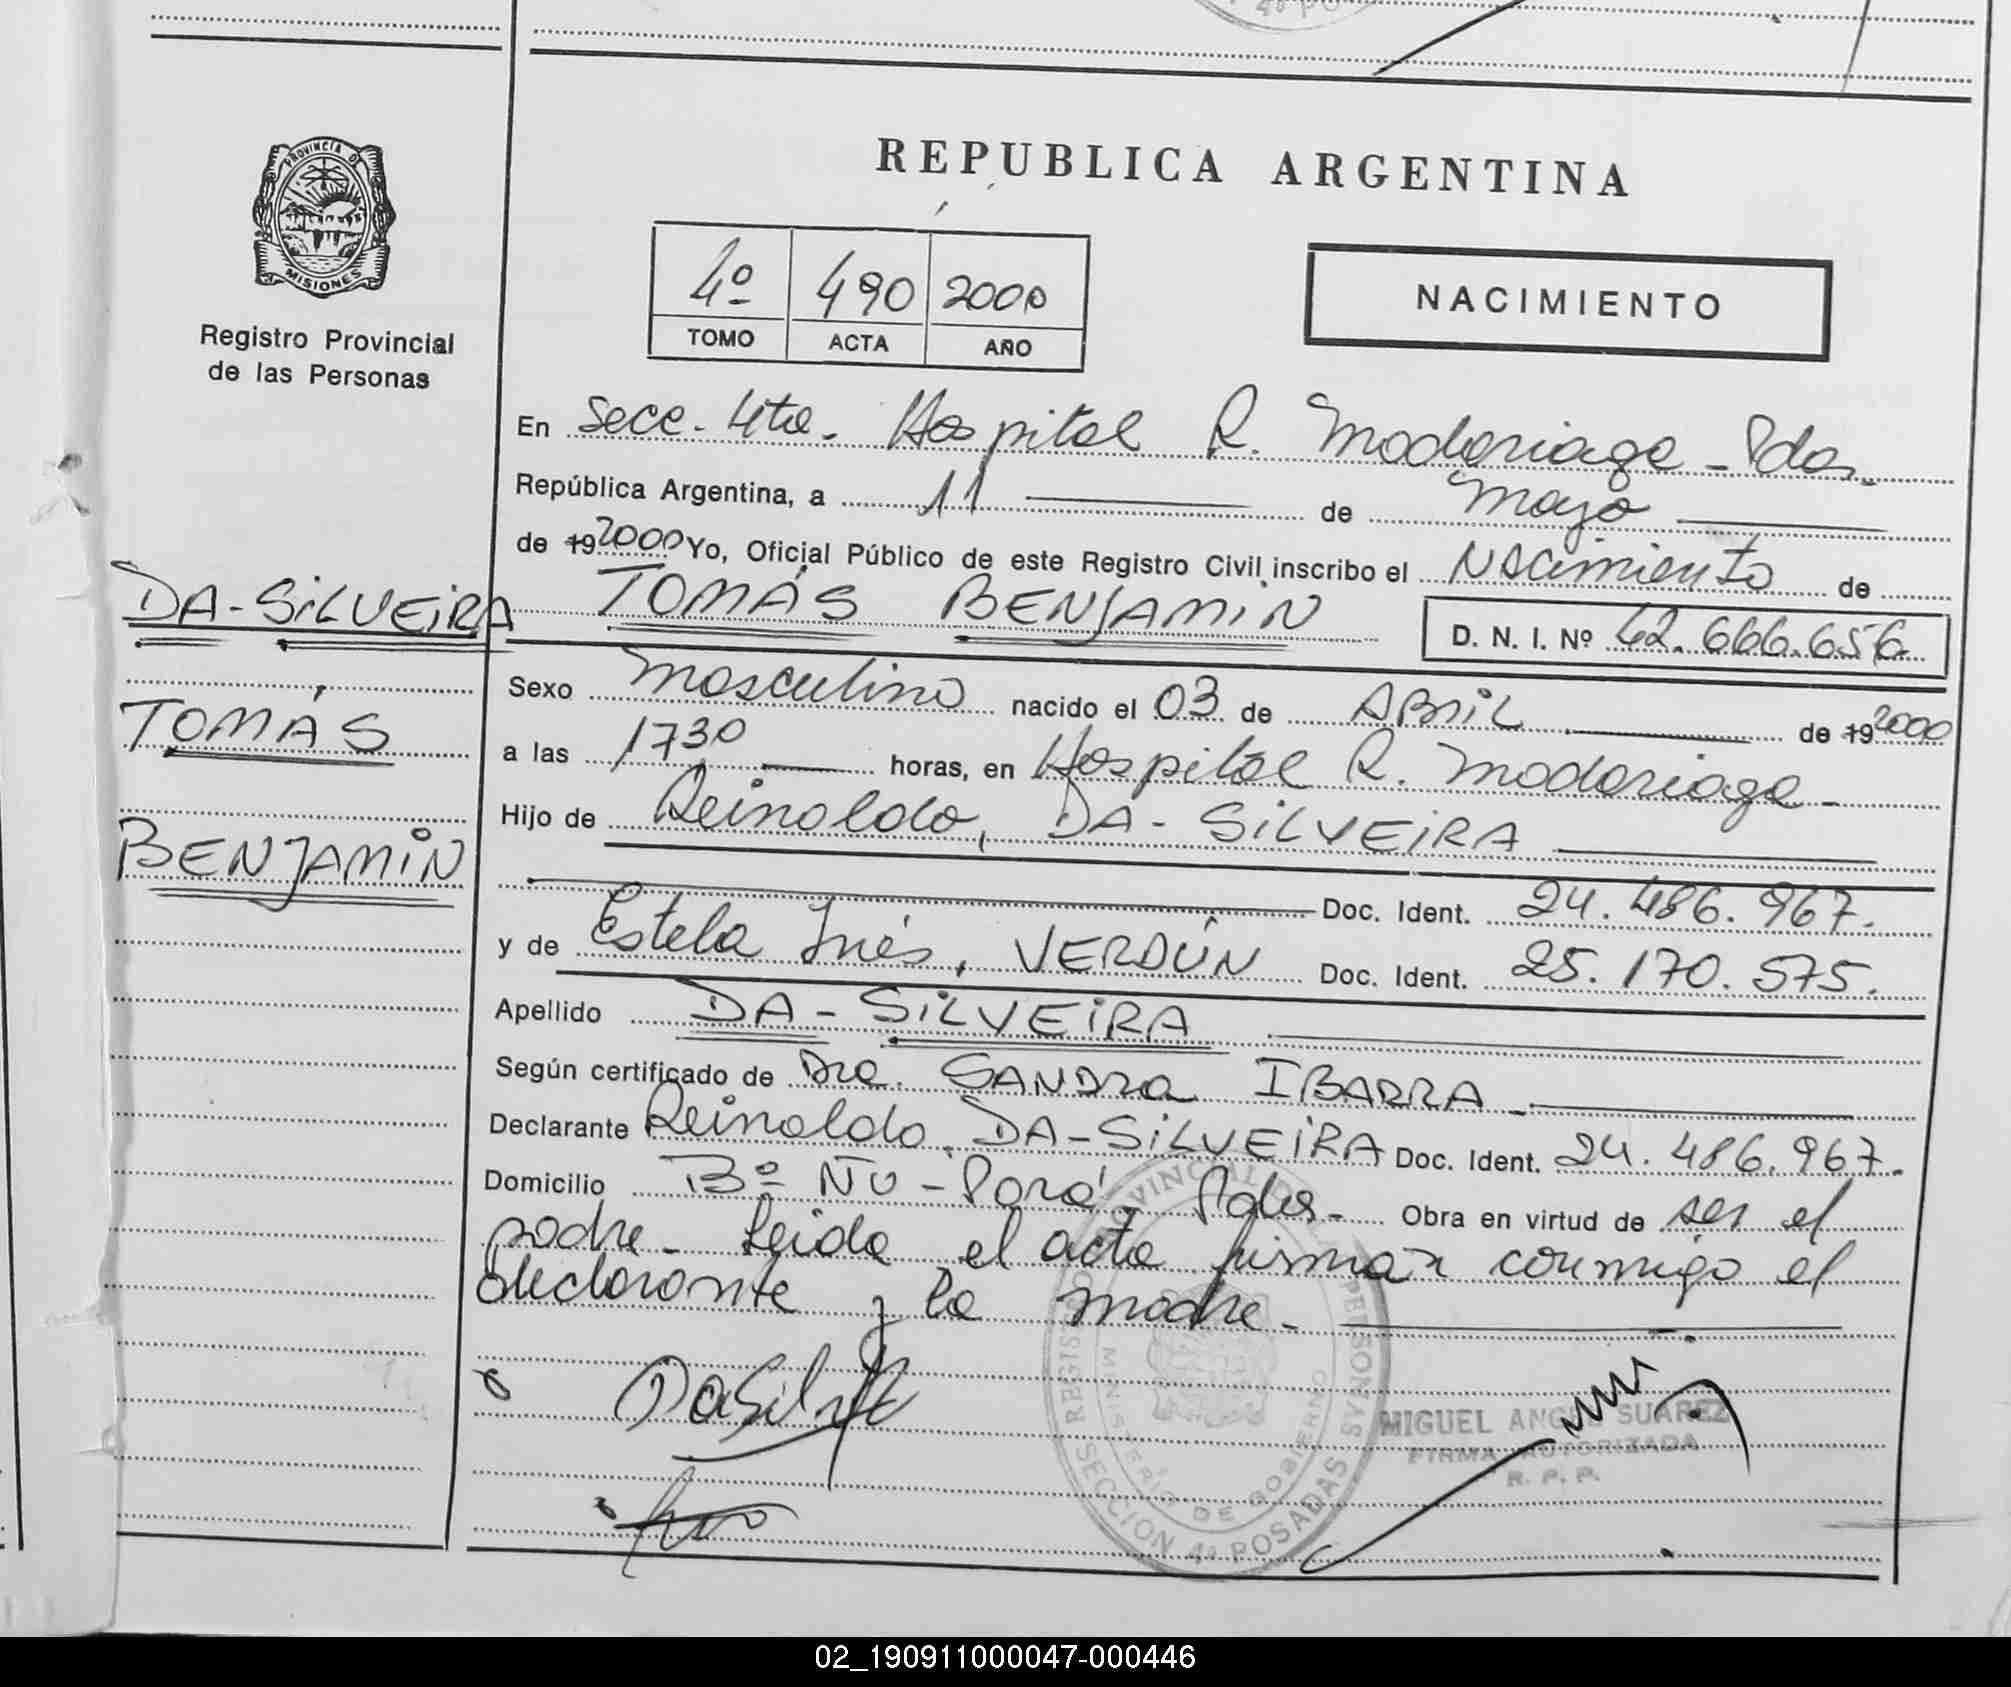 REPUBLICA ARGENTINA
PROVINCIA DE
MISIONES
Registro Provincial
de las Personas
4º 490 2000
TOMO ACTA AÑO
NACIMIENTO
En Secc. 4ta. Hospital R. Madariaga - Pdas.
República Argentina, a 11 de Mayo
de 192000 Yo, Oficial Público de este Registro Civil inscribo el Nacimiento de
DA-SILVEIRA
TOMÁS BENJAMIN
D. N. I. Nº 42.666.656
Sexo Masculino nacido el 03 de ABRIL de 192000
TOMÁS
a las 1730 horas, en Hospital R. Madariaga -
Hijo de Reinaldo, DA-SILVEIRA
BENJAMIN
Doc. Ident. 24.486.967.
y de Estela Inés, VERDÚN Doc. Ident. 25.170.575.
Apellido DA-SILVEIRA
Según certificado de Dra. SANDRA IBARRA -
Declarante Reinaldo, DA-SILVEIRA Doc. Ident. 24.486.967.
Domicilio Bº ÑU-Porá, Pdas. Obra en virtud de ser el
padre - Leida el acta firman conmigo el
declarante y la madre -
REGISTRO PROVINCIAL DE LAS PERSONAS
MINISTERIO DE GOBIERNO
SECCION 4ª POSADAS
DaSilv
MIGUEL ANGEL SUAREZ
FIRMA AUTORIZADA
R. P. P.
02_190911000047-000446